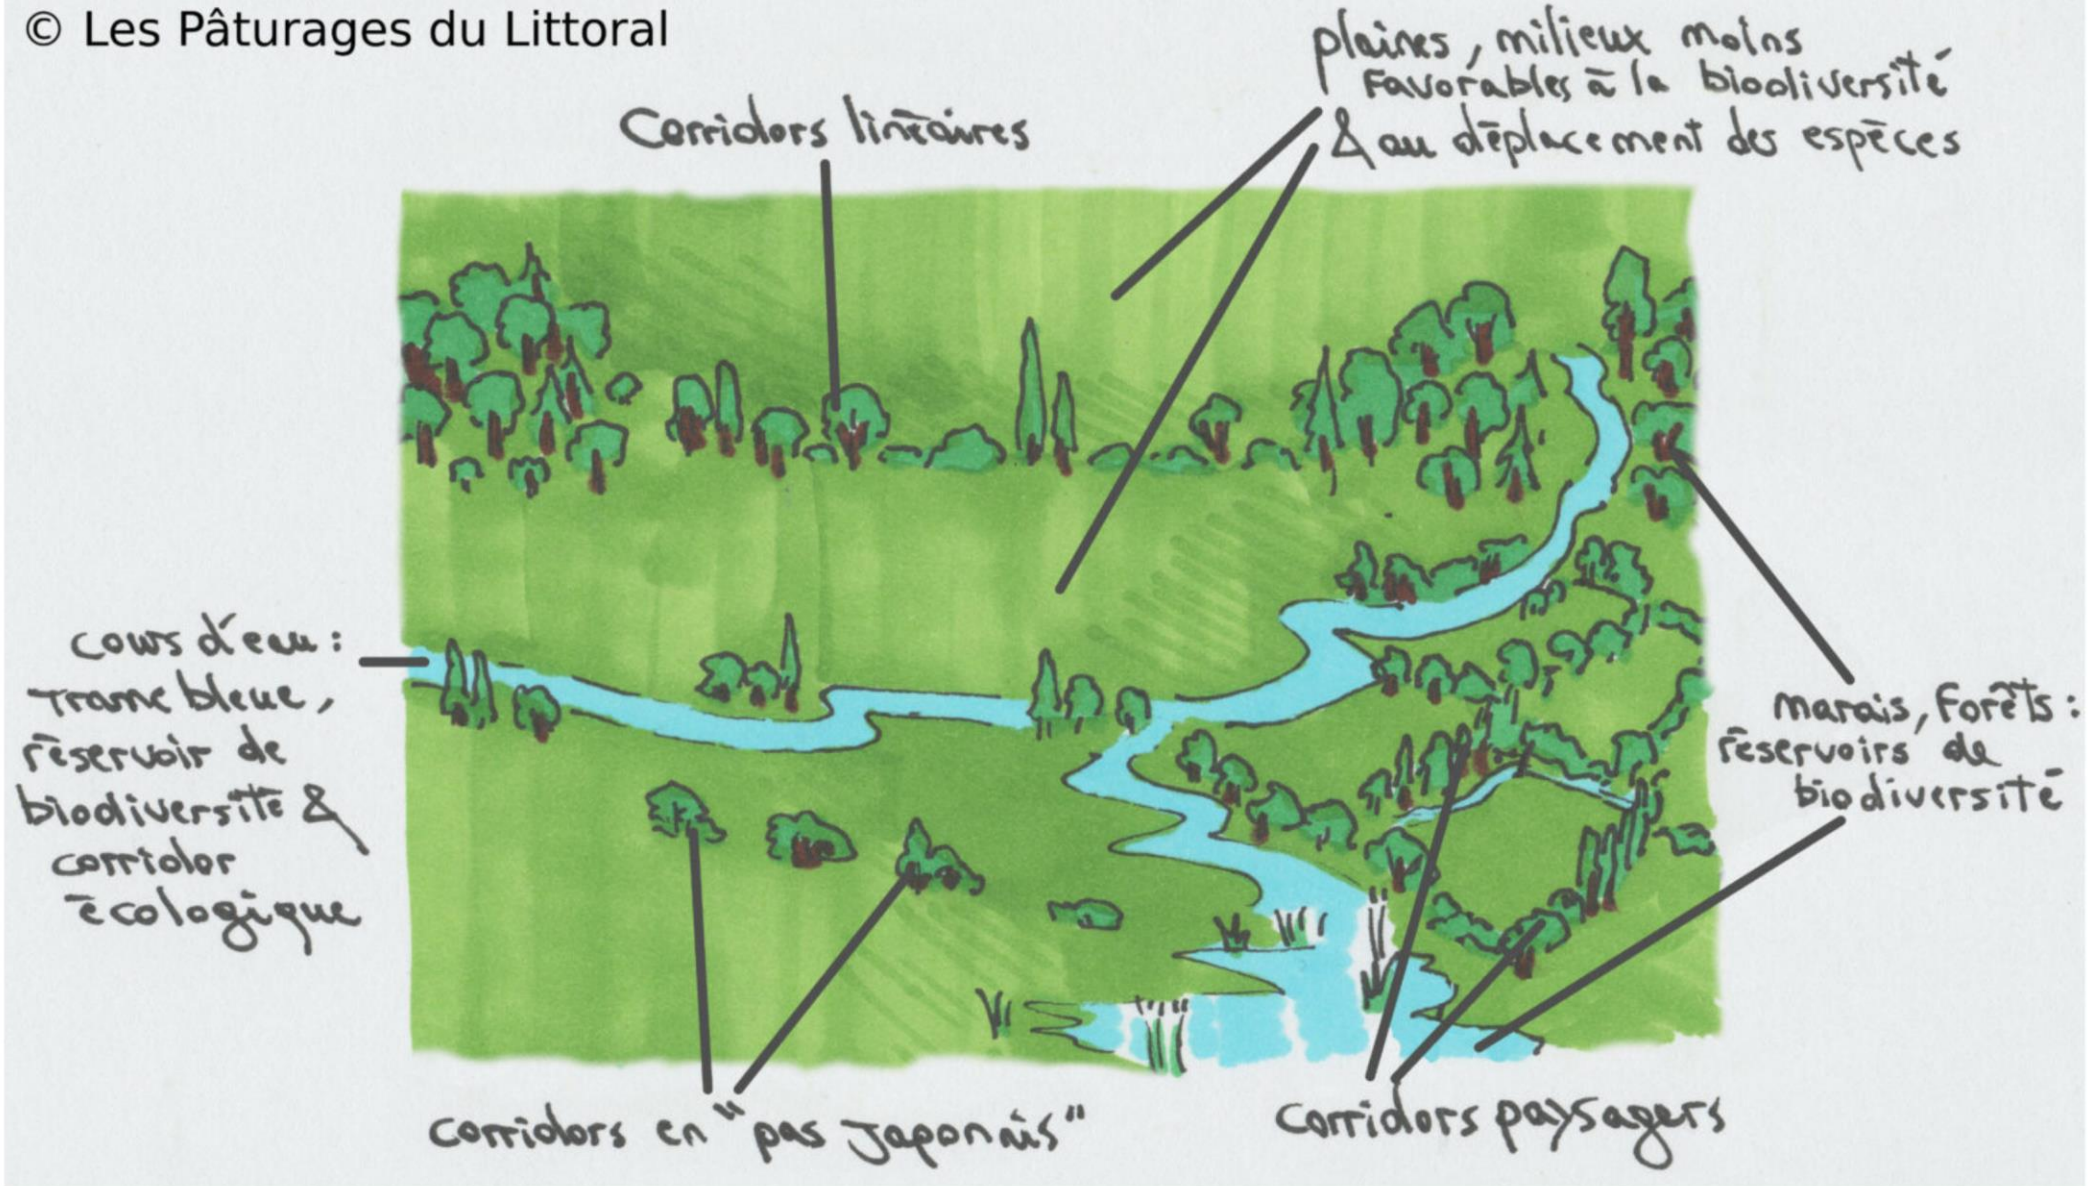 © Les Pâturages du Littoral
plaines, milieux moins
favorables à la biodiversité
& au déplacement des espèces
Corridors linéaires
cours d'eau :
trame bleue,
réservoir de
biodiversité &
corridor
écologique
marais, forêts :
réservoirs de
biodiversité
corridors en "pas japonais"
corridors paysagers